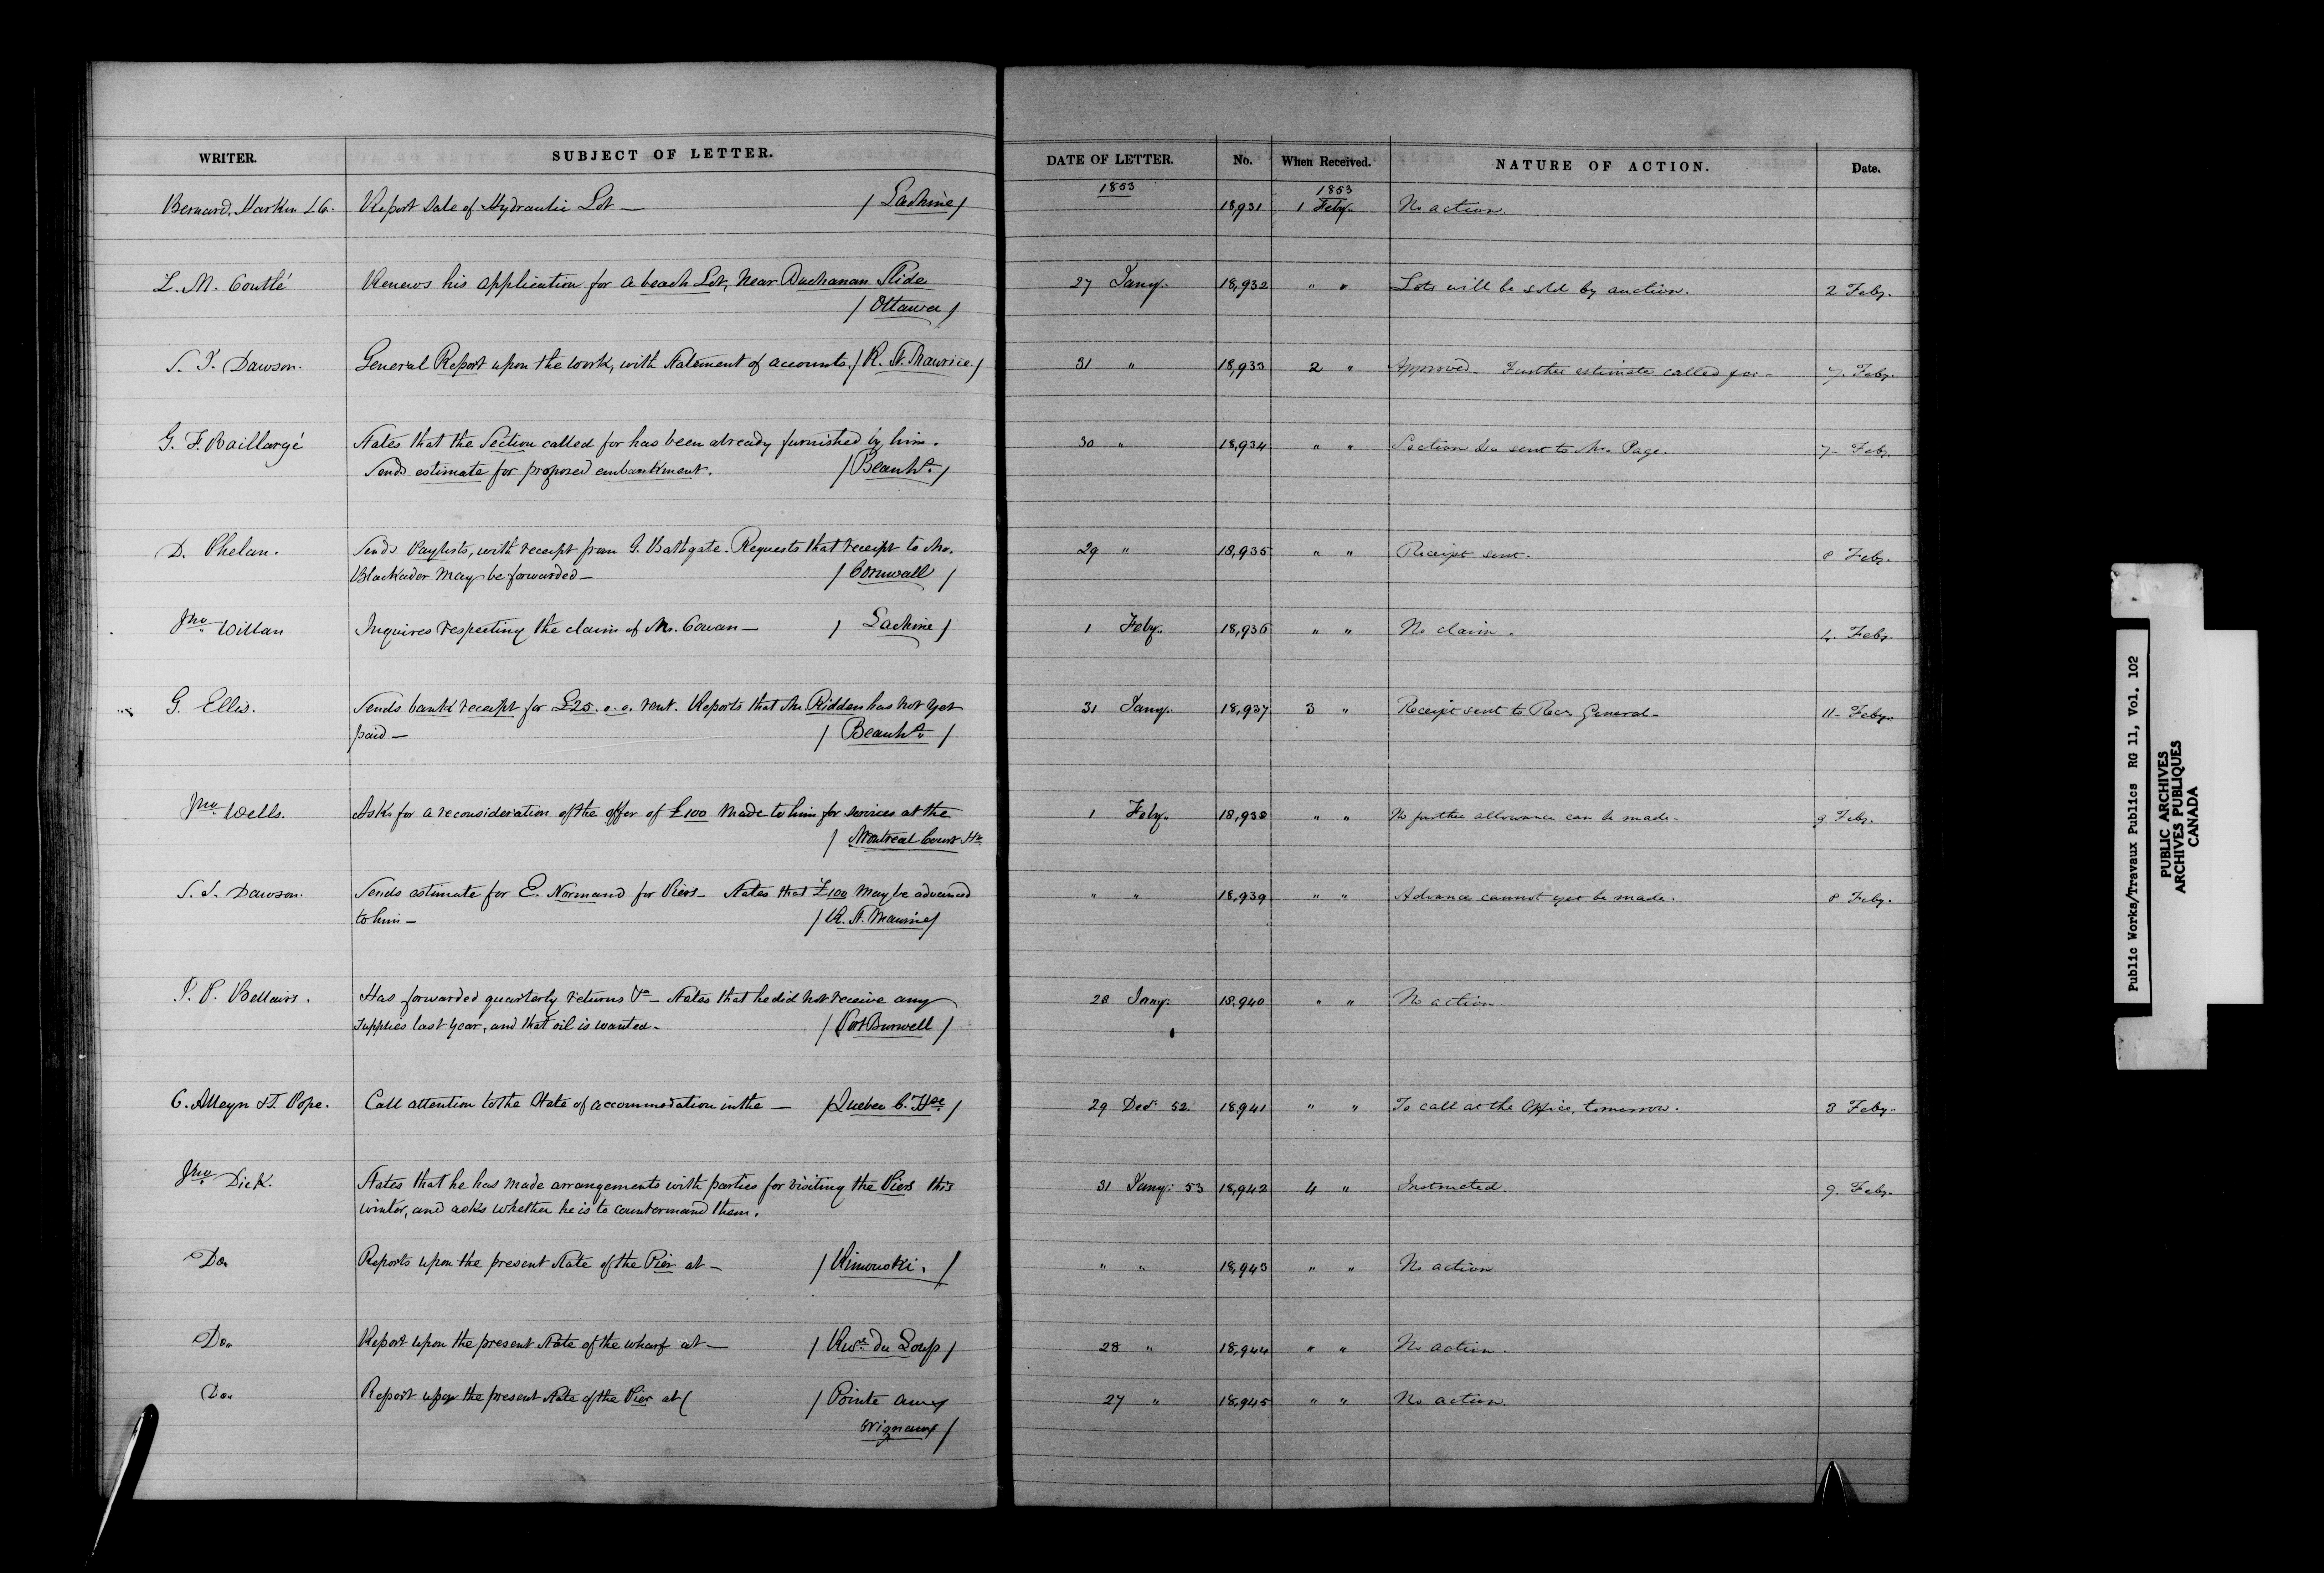 WRITER. SUBJECT OF LETTER. DATE OF LETTER. No. When Received. NATURE OF ACTION. Date.
1853 1853
Bernard, Report Sale of Hydraulic Lot — / Lachine / 18,931 1 Feby. No action.
L. M. Coutlé Renews his application for a beach Lot, near Buchanan Slide 27 Jany. 18,932 " " Lots will be sold by auction. 2 Feby.
/ Ottawa /
S. J. Dawson. General Report upon the work, with Statement of accounts. / R. St. Maurice. / 31 " 18,933 2 " Approved. Further estimate called for. 7. Feby.
G. F. Baillargé States that the Section called for has been already furnished by him. 30 " 18,934 " " Section &c sent to Mr. Page. 7 Feby.
Sends estimate for proposed embankment. / Beauhs. /
D. Phelan. Sends Paylists, with receipt from G. Bathgate. Requests that receipt to Mr. 29 " 18,935 " " Receipt sent. 8 Feby.
Blackador may be forwarded — / Cornwall /
Jno. Willan Inquires respecting the claim of Mr. Cowan — / Lachine / 1 Feby. 18,936 " " No claim. 4. Feby.
G. Ellis. Sends bank receipt for £25. 0. 0. rent. Reports that Mr. Ridden has not yet 31 Jany. 18,937 3 " Receipt sent to Recr. General. 11 Feby.
paid — / Beauhs. /
Jno. Wells. Asks for a reconsideration of the offer of £100 made to him for services at the 1 Feby. 18,938 " " No further allowance can be made. 9 Feby.
/ Montreal Court He.
S. J. Dawson. Sends estimate for E. Normand for Piers — States that £100 may be advanced " " 18,939 " " Advance cannot yet be made. 8 Feby.
to him — / R. St. Maurice /
J. P. Bellairs. Has forwarded quarterly returns &c — States that he did not receive any 28 Jany. 18,940 " " No action
supplies last year, and that oil is wanted. / Port Burwell /
C. Alleyn & J. Pope. Call attention to the State of accommodation in the — / Quebec C. Hse / 29 Decr. 52. 18,941 " " To call at the Office, tomorrow. 3 Feby.
Jno. Dick. States that he has made arrangements with parties for visiting the Piers this 31 Jany. 53 18,942 4 " Instructed. 9. Feby.
winter, and asks whether he is to countermand them.
Do. Reports upon the present State of the Pier at — / Rimouski. / " " 18,943 " " No action
Do. Report upon the present State of the wharf at — / Rivre. du Loup / 28 " 18,944 " " No action.
Do. Report upon the present State of the Pier at / Pointe aux 27 " 18,945 " " No action.
Orignaux /
Public Works/Travaux Publics RG 11, Vol. 102
PUBLIC ARCHIVES
ARCHIVES PUBLIQUES
CANADA